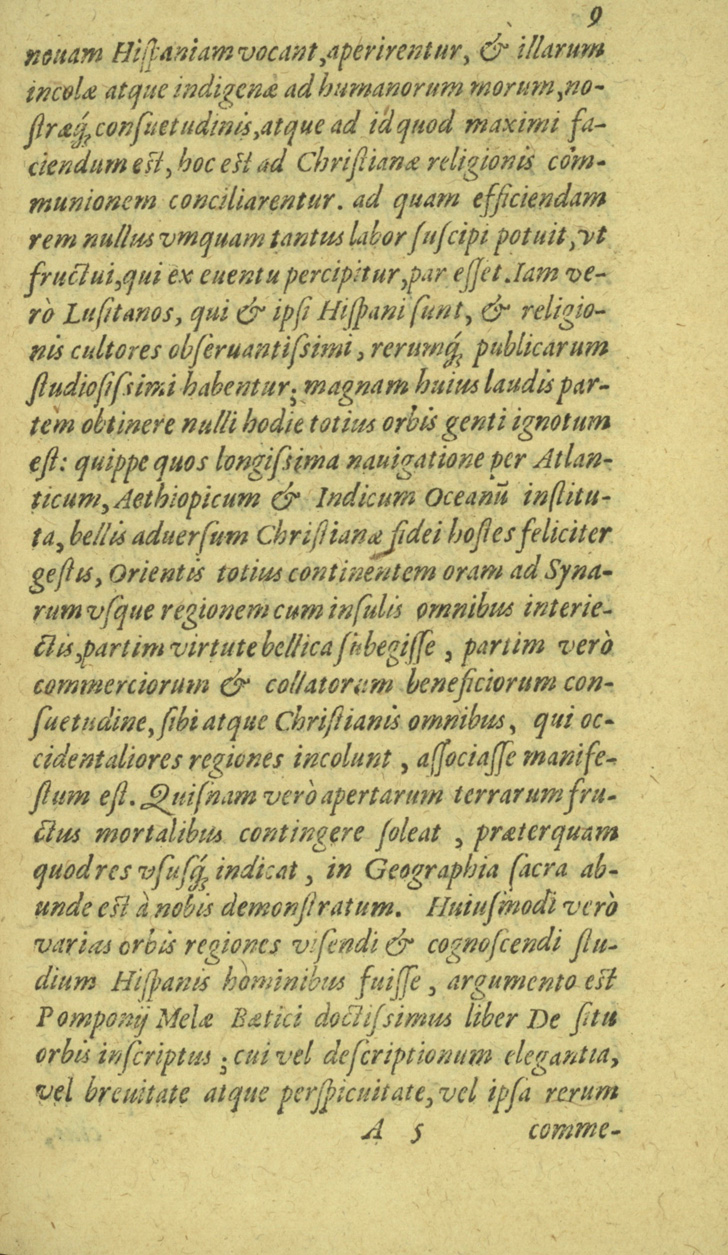 9
nouam Hiſpaniam vocant, aperirentur, & illarum
incolæ atque indigenæ ad humanorum morum, no-
ſtræq́; conſuetudinis, atque ad id quod maximi fa-
ciendum est, hoc est ad Chriſtianæ religionis com-
munionem conciliarentur. ad quam efficiendam
rem nullus vmquam tantus labor ſuſcipi potuit, vt
fructui, qui ex euentu percipitur, par eſſet. Iam ve-
rò Luſitanos, qui & ipſi Hiſpani ſunt, & religio-
nis cultores obſeruantiſsimi, rerumq́; publicarum
ſtudioſiſsimi habentur; magnam huius laudis par-
tem obtinere nulli hodie totius orbis genti ignotum
eſt: quippe quos longiſsima nauigatione per Atlan-
ticum, Aethiopicum & Indicum Oceanũ inſtitu-
ta, bellis aduerſum Chriſtianæ fidei hoſtes feliciter
geſtis, Orientis totius continentem oram ad Syna-
rum vſque regionem cum inſulis omnibus interie-
ctis, partim virtute bellica ſubegiſſe, partim verò
commerciorum & collatorum beneficiorum con-
ſuetudine, ſibi atque Chriſtianis omnibus, qui oc-
cidentaliores regiones incolunt, aſſociaſſe manife-
ſtum eſt. Quiſnam verò apertarum terrarum fru-
ctus mortalibus contingere ſoleat, præterquam
quod res vſuſq́; indicat, in Geographia ſacra ab-
unde est à nobis demonſtratum. Huiuſmodi verò
varias orbis regiones viſendi & cognoſcendi ſtu-
dium Hiſpanis hominibus fuiſſe, argumento est
Pomponij Melæ Bætici doctiſsimus liber De ſitu
orbis inſcriptus; cui vel deſcriptionum elegantia,
vel breuitate atque perſpicuitate, vel ipſa rerum
A 5 comme-